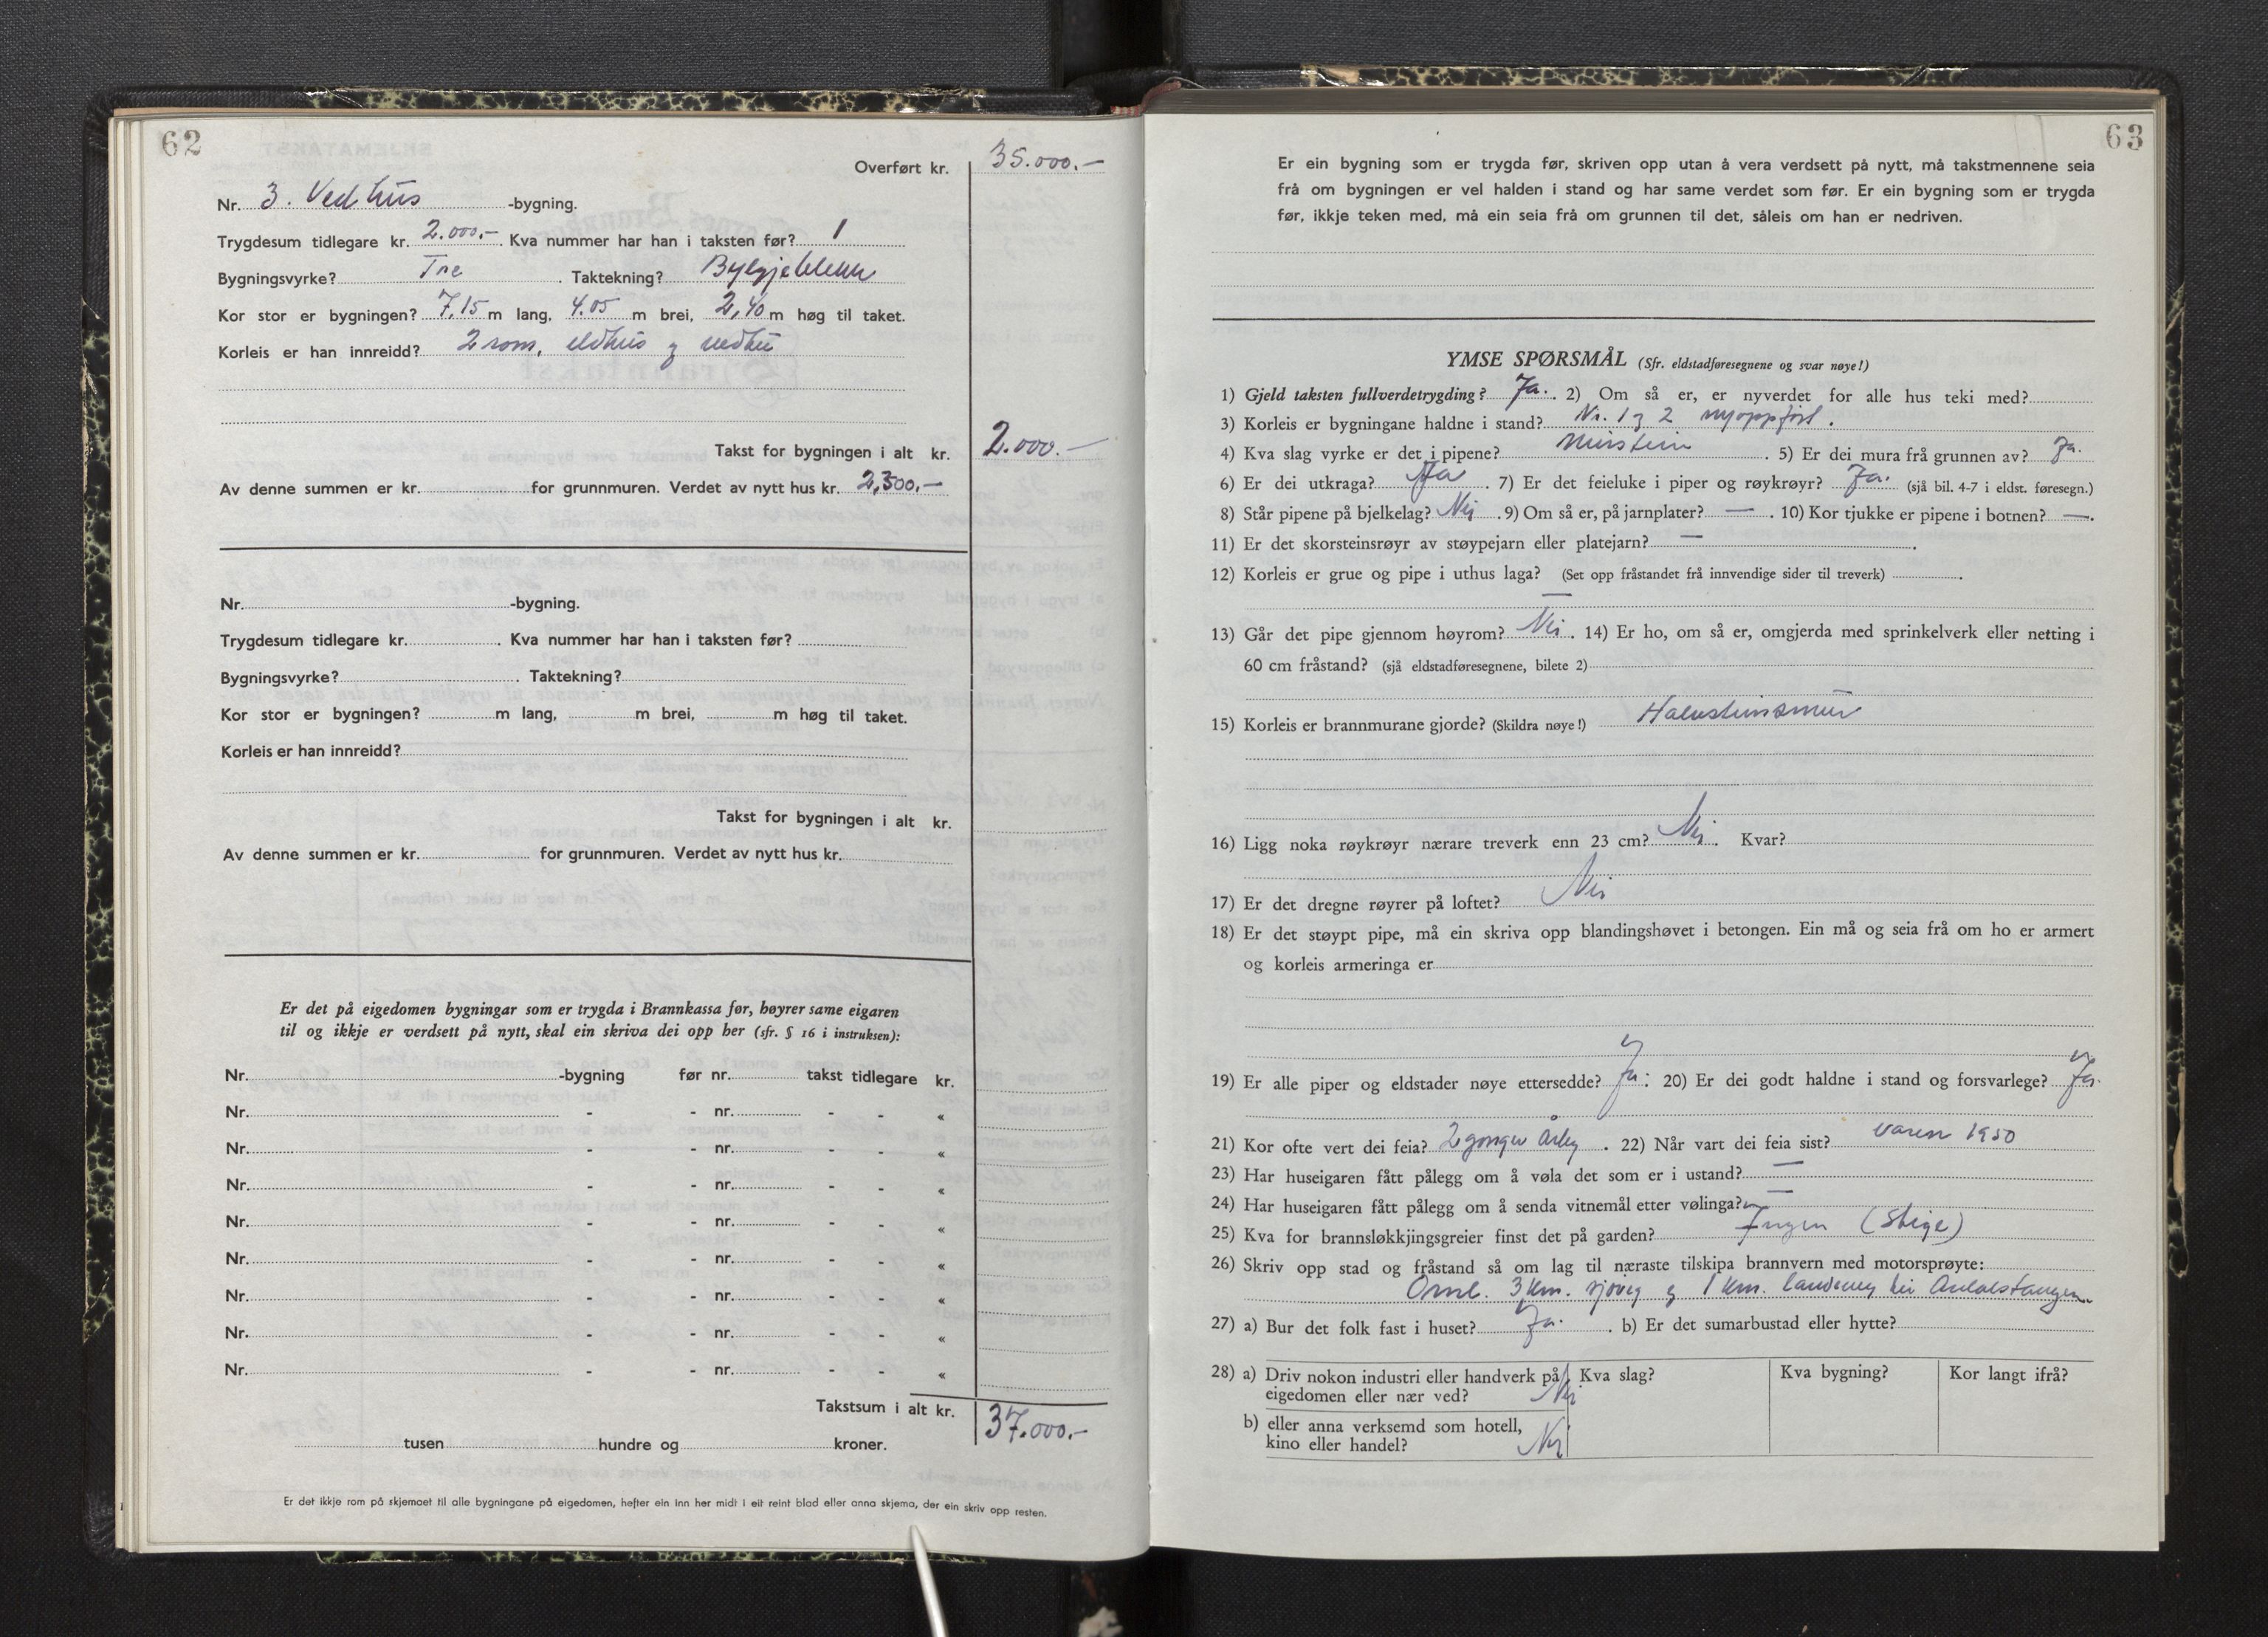 62
Overført kr. 35.000.-
Nr. 3. Vedhus -bygning.
Trygdesum tidlegare kr. 2.000.- . Kva nummer har han i taksten før? 1
Bygningsvyrke? Tre . Taktekning? Bylgjeblekk
Kor stor er bygningen? 7,15 m lang, 4.05 m brei, 2,40 m høg til taket.
Korleis er han innreidd? 2 rom, eldhus og vedhus
Takst for bygningen i alt kr. 2.000.-
Av denne summen er kr. for grunnmuren. Verdet av nytt hus kr. 2,500,-
Nr. -bygning.
Trygdesum tidlegare kr. . Kva nummer har han i taksten før?
Bygningsvyrke? . Taktekning?
Kor stor er bygningen? m lang, m brei, m høg til taket.
Korleis er han innreidd?
Takst for bygningen i alt kr.
Av denne summen er kr. for grunnmuren. Verdet av nytt hus kr.
Er det på eigedomen bygningar som er trygda i Brannkassa før, høyrer same eigaren
til og ikkje er verdsett på nytt, skal ein skriva dei opp her (sfr. § 16 i instruksen):
Nr. -bygning før nr. takst tidlegare kr.
Nr. - - nr. - - «
Nr. - - nr. - - «
Nr. - - nr. - - «
Nr. - - nr. - - «
Nr. - - nr. - - «
Nr. - - nr. - - «
Nr. - - nr. - - «
Nr. - - nr. - - «
Takstsum i alt kr. 37.000.-
tusen hundre og kroner.
Er det ikkje rom på skjemaet til alle bygningane på eigedomen, hefter ein inn her midt i eit reint blad eller anna skjema, der ein skriv opp resten.
63
Er ein bygning som er trygda før, skriven opp utan å vera verdsett på nytt, må takstmennene seia
frå om bygningen er vel halden i stand og har same verdet som før. Er ein bygning som er trygda
før, ikkje teken med, må ein seia frå om grunnen til det, såleis om han er nedriven.
YMSE SPØRSMÅL (Sfr. eldstadføresegnene og svar nøye!)
1) Gjeld taksten fullverdetrygding? Ja. . 2) Om så er, er nyverdet for alle hus teki med?
3) Korleis er bygningane haldne i stand? Nr. 1 og 2 nyoppført.
4) Kva slag vyrke er det i pipene? Murstein . 5) Er dei mura frå grunnen av? Ja.
6) Er dei utkraga? Ja . 7) Er det feieluke i piper og røykrøyr? Ja. (sjå bil. 4-7 i eldst. føresegn.)
8) Står pipene på bjelkelag? Nei . 9) Om så er, på jarnplater? — . 10) Kor tjukke er pipene i botnen? — .
11) Er det skorsteinsrøyr av støypejarn eller platejarn? — .
12) Korleis er grue og pipe i uthus laga? (Set opp fråstandet frå innvendige sider til treverk) .
—
13) Går det pipe gjennom høyrom? Nei . 14) Er ho, om så er, omgjerda med sprinkelverk eller netting i
60 cm fråstand? (sjå eldstadføresegnene, bilete 2)
15) Korleis er brannmurane gjorde? (Skildra nøye!) Halvsteinsmur
16) Ligg noka røykrøyr nærare treverk enn 23 cm? Nei . Kvar?
17) Er det dregne røyrer på loftet? Nei
18) Er det støypt pipe, må ein skriva opp blandingshøvet i betongen. Ein må og seia frå om ho er armert
og korleis armeringa er
19) Er alle piper og eldstader nøye ettersedde? Ja . 20) Er dei godt haldne i stand og forsvarlege? Ja.
21) Kor ofte vert dei feia? 2 gonger årleg . 22) Når vart dei feia sist? våren 1950
23) Har huseigaren fått pålegg om å vøla det som er i ustand? —
24) Har huseigaren fått pålegg om å senda vitnemål etter vølinga? —
25) Kva for brannsløkkjingsgreier finst det på garden? Ingen (Stige)
26) Skriv opp stad og fråstand så om lag til næraste tilskipa brannvern med motorsprøyte:
Oml. 3 km. sjøveg og 1 km. landeveg til
27) a) Bur det folk fast i huset? Ja. . b) Er det sumarbustad eller hytte?
28) a) Driv nokon industri eller handverk på eigedomen eller nær ved? Nei Kva slag? Kva bygning? Kor langt ifrå?
b) eller anna verksemd som hotell, kino eller handel? Nei